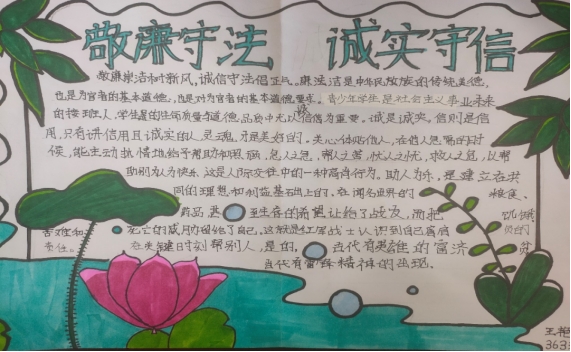 敬廉守法 诚实守信
敬廉崇洁树新风,诚信守法倡正气,廉洁是中华民族的传统美德,
也是为官者的基本道德,也是对为官者的基本道德要求。青少年学生是社会主义事业未来
的接班人,学生最的住师质量道德品质中尤以信信为重要。诚是诚实,信则是信
用,只有讲信用且诚实的人,灵魂才是美好的。关心体贴他人,在他人危难的时
候,能主动热情地给予帮助和照顾,急人之急,帮人之苦,忧人之忧,救人之急,以帮
助别人为快乐,这是人际交往中的一种高尚行为。助人为乐,是建立在共
同的理想和利益基础上的,在闻名世界的 粮食、
药品,甚 至生存的希望让给了战友,而把 饥饿
苦难和 死亡的威胁留给了自己,这就是红军战士认识到自己肩负的
责任。 在关键时刻帮别人,是的, 古代有 的富济
当代有雷锋精神的出现。
王艳
363